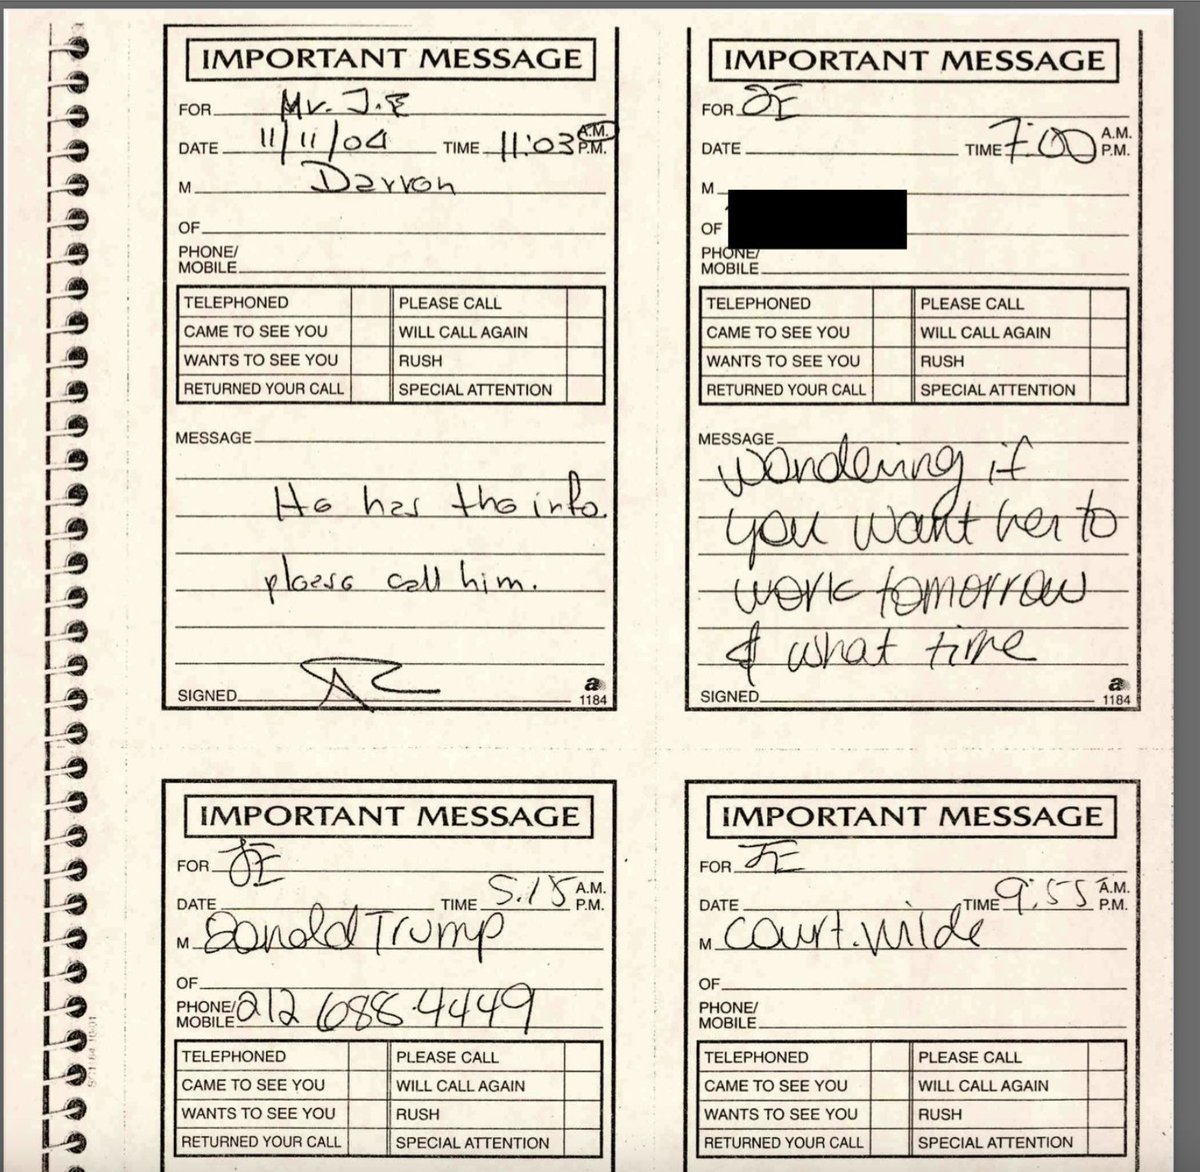 IMPORTANT MESSAGE
FOR Mr. J.E
DATE 11/11/04 TIME 11:03 A.M. P.M.
M Darren
OF
PHONE/
MOBILE
TELEPHONED PLEASE CALL
CAME TO SEE YOU WILL CALL AGAIN
WANTS TO SEE YOU RUSH
RETURNED YOUR CALL SPECIAL ATTENTION
MESSAGE
He has the info.
please call him.
SIGNED
a
1184
IMPORTANT MESSAGE
FOR JE
DATE TIME 7:00 A.M. P.M.
M
OF
PHONE/
MOBILE
TELEPHONED PLEASE CALL
CAME TO SEE YOU WILL CALL AGAIN
WANTS TO SEE YOU RUSH
RETURNED YOUR CALL SPECIAL ATTENTION
MESSAGE
wondering if
you want her to
work tomorrow
& what time
SIGNED
a
1184
IMPORTANT MESSAGE
FOR JE
DATE TIME 5:15 A.M. P.M.
M Donald Trump
OF
PHONE/
MOBILE 212 688-4449
TELEPHONED PLEASE CALL
CAME TO SEE YOU WILL CALL AGAIN
WANTS TO SEE YOU RUSH
RETURNED YOUR CALL SPECIAL ATTENTION
IMPORTANT MESSAGE
FOR JE
DATE TIME 9:55 A.M. P.M.
M Court. Wilde
OF
PHONE/
MOBILE
TELEPHONED PLEASE CALL
CAME TO SEE YOU WILL CALL AGAIN
WANTS TO SEE YOU RUSH
RETURNED YOUR CALL SPECIAL ATTENTION